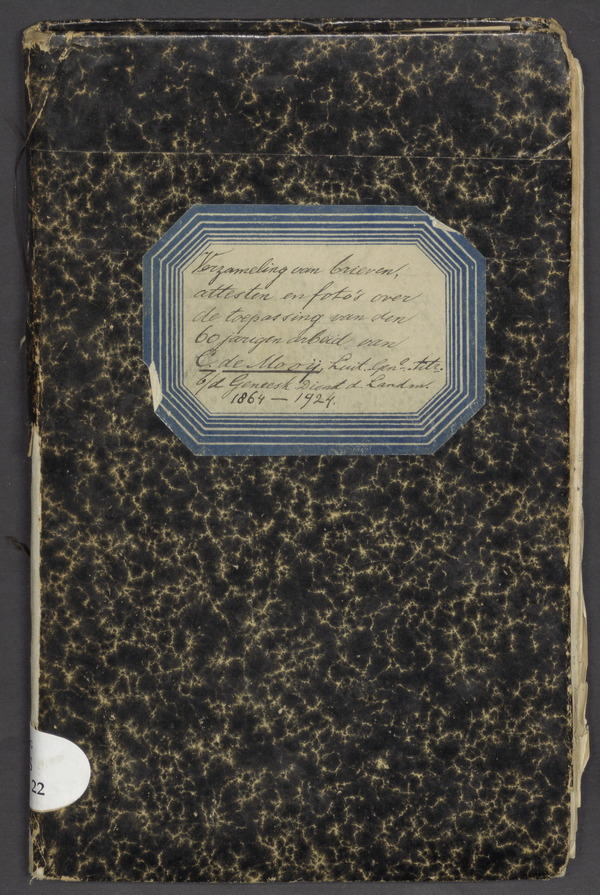 Verzameling van brieven,
attesten en foto's over
de toepassing van den
60 jarigen arbeid van
C. de Mooij, Luit. Genl. Titr.
b/d Geneesk. Dienst d. Landm.
1864 — 1924.
22